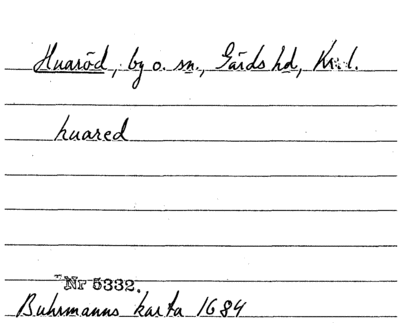 Huaröd, by o. sn., Gärds hd, Kr. l.
huared
Nr 5332.
Buhrmanns karta 1684